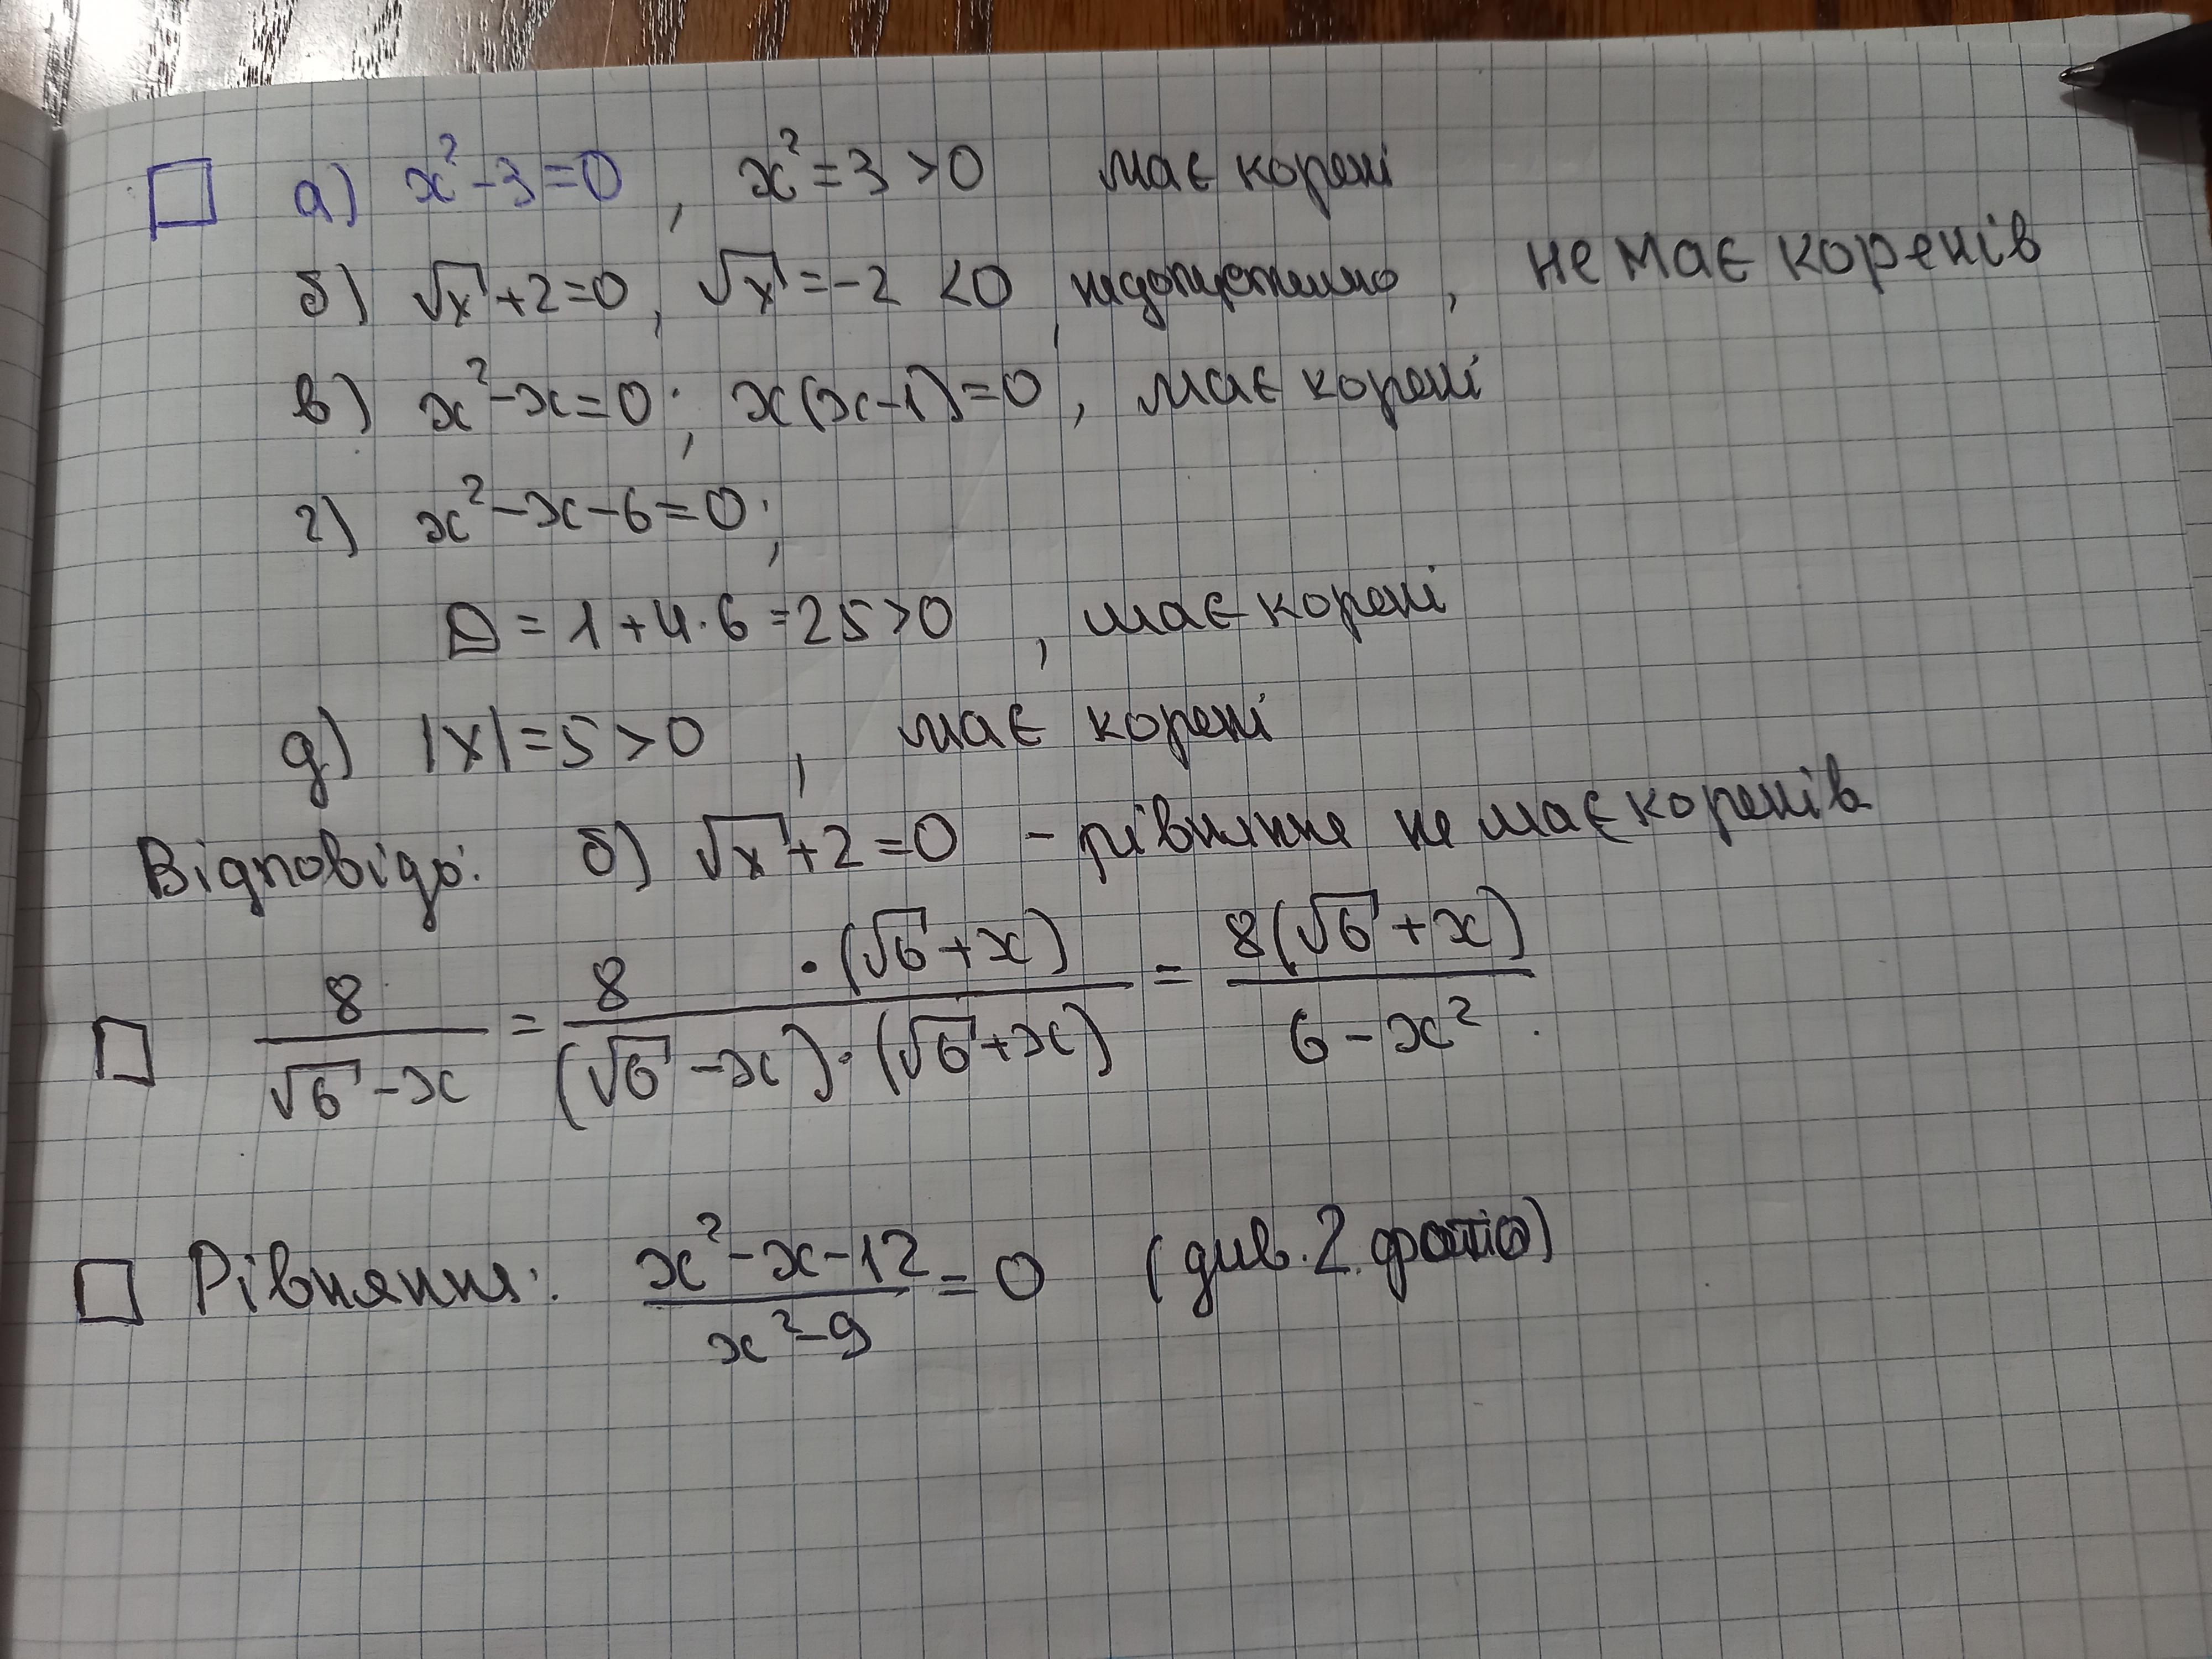 □ а) x² - 3 = 0 , x² = 3 > 0 має корені
б) √x + 2 = 0 , √x = -2 < 0 , недопустимо , не має коренів
в) x² - x = 0 ; x(x - 1) = 0 , має корені
г) x² - x - 6 = 0 ;
D = 1 + 4 · 6 = 25 > 0 , має корені
д) |x| = 5 > 0 , має корені
Відповідь: б) √x + 2 = 0 - рівняння не має коренів
□ 8/(√6 - x) = (8 · (√6 + x))/((√6 - x) · (√6 + x)) = (8(√6 + x))/(6 - x²) .
□ Рівняння: (x² - x - 12)/(x² - 9) = 0 (див. 2 фото)